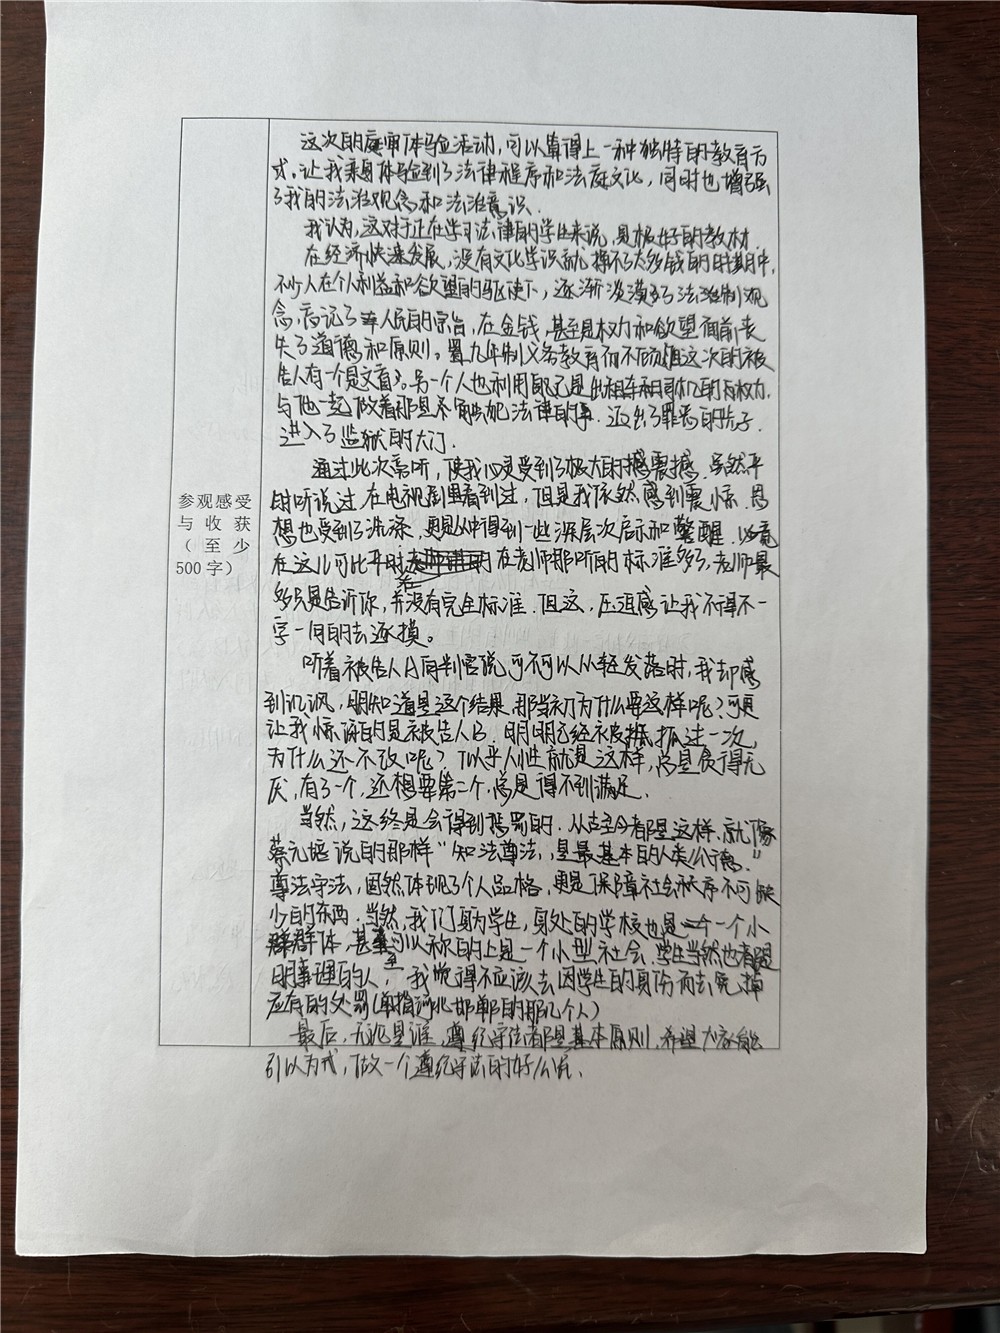 参观感受
与收获
（至少
500字）
这次的庭审体验活动，可以算得上一种独特的教育方
式。让我亲身体验到了法律程序和法庭文化，同时也增强
了我的法治观念和法治意识．
我认为，这对于正在学习法律的学生来说，是极好的教材．
在经济快速发展，没有文化学识就挣不了太多钱的时期中，
不少人在个人利益和欲望的驱使下，逐渐淡漠了法治制观
念，忘记了人民的宗旨，在金钱，甚至是权力和欲望面前丧
失了道德和原则。九年制义务教育但这次的被
告人有一个是文盲了。另一个人也利用自己是出租车司机的权力，
与他一起做着那是不触犯法律的事．迈出了罪恶的步子．
进入了监狱的大门．
通过此次旁听，使我心灵受到了极大的震撼．虽然平
时听说过，在电视剧里看到过，但是我依然感到震惊．思
想也受到了洗涤，更是从中得到一些深层次启示和警醒．毕竟
在这儿可比平时在老师那听的标准多了，老师最
多只是告诉你，并没有完全标准．但这，压迫感让我不得不一
字一句的去逐摸。
听着被告人A向判官说可不可以从轻发落时，我却感
到讥讽，明知道是这个结果，那当初为什么要这样呢？可更
让我惊讶的是被告人B．明明已经被抓过一次，
为什么还不改呢？似乎人性就是这样，总是贪得无
厌，有了一个，还想要第二个，总是得不到满足．
当然，这终是会得到惩罚的．从古至今都是这样．就像
蔡元培说的那样“知法尊法，是最基本的人类公德．”
尊法守法，固然体现了个人品格，更是保障社会秩序不可缺
少的东西．当然，我们身为学生，身处的学校也是一个小
群体，甚至可以称的上是一个小型社会．学生当然也都是
明事理的人，我觉得不应该去因学生的身份而去免掉
应存的处罚（单指河北邯郸的那几个人）
最后，无论是谁，遵纪守法都是基本原则，希望大家能
引以为戒，做一个遵纪守法的好公民．